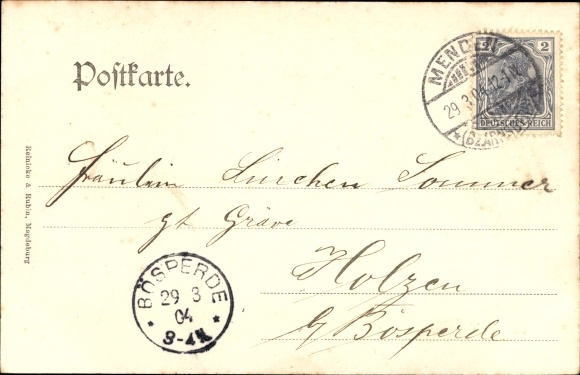 Postkarte.
MENDEN
29.3.04.12-1N.
*(BZ.ARNSBERG)
2
DEUTSCHES REICH
Fräulein Linchen Sommer
gt. Gräve
Holzen
b/ Bösperde
BÖSPERDE
29 3
04
* 3-4N. *
Reinicke & Rubin, Magdeburg